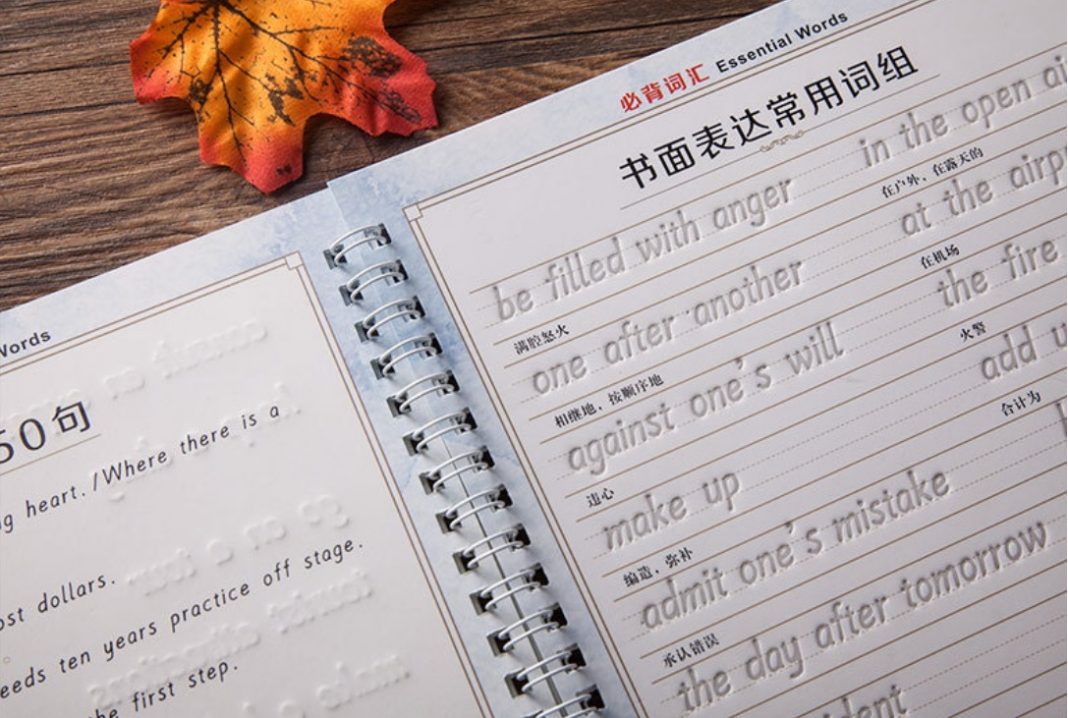 Words
50句
heart. /Where there is a
dollars.
ten years practice off stage.
first step.
必背词汇 Essential Words
书面表达常用词组
be filled with anger in the open
满腔怒火 在户外，在露天的
one after another at the
相继地，按顺序地 在机场
against one's will the fire
违心 火警
make up add
编造，弥补 合计为
admit one's mistake
承认错误
the day after tomorrow